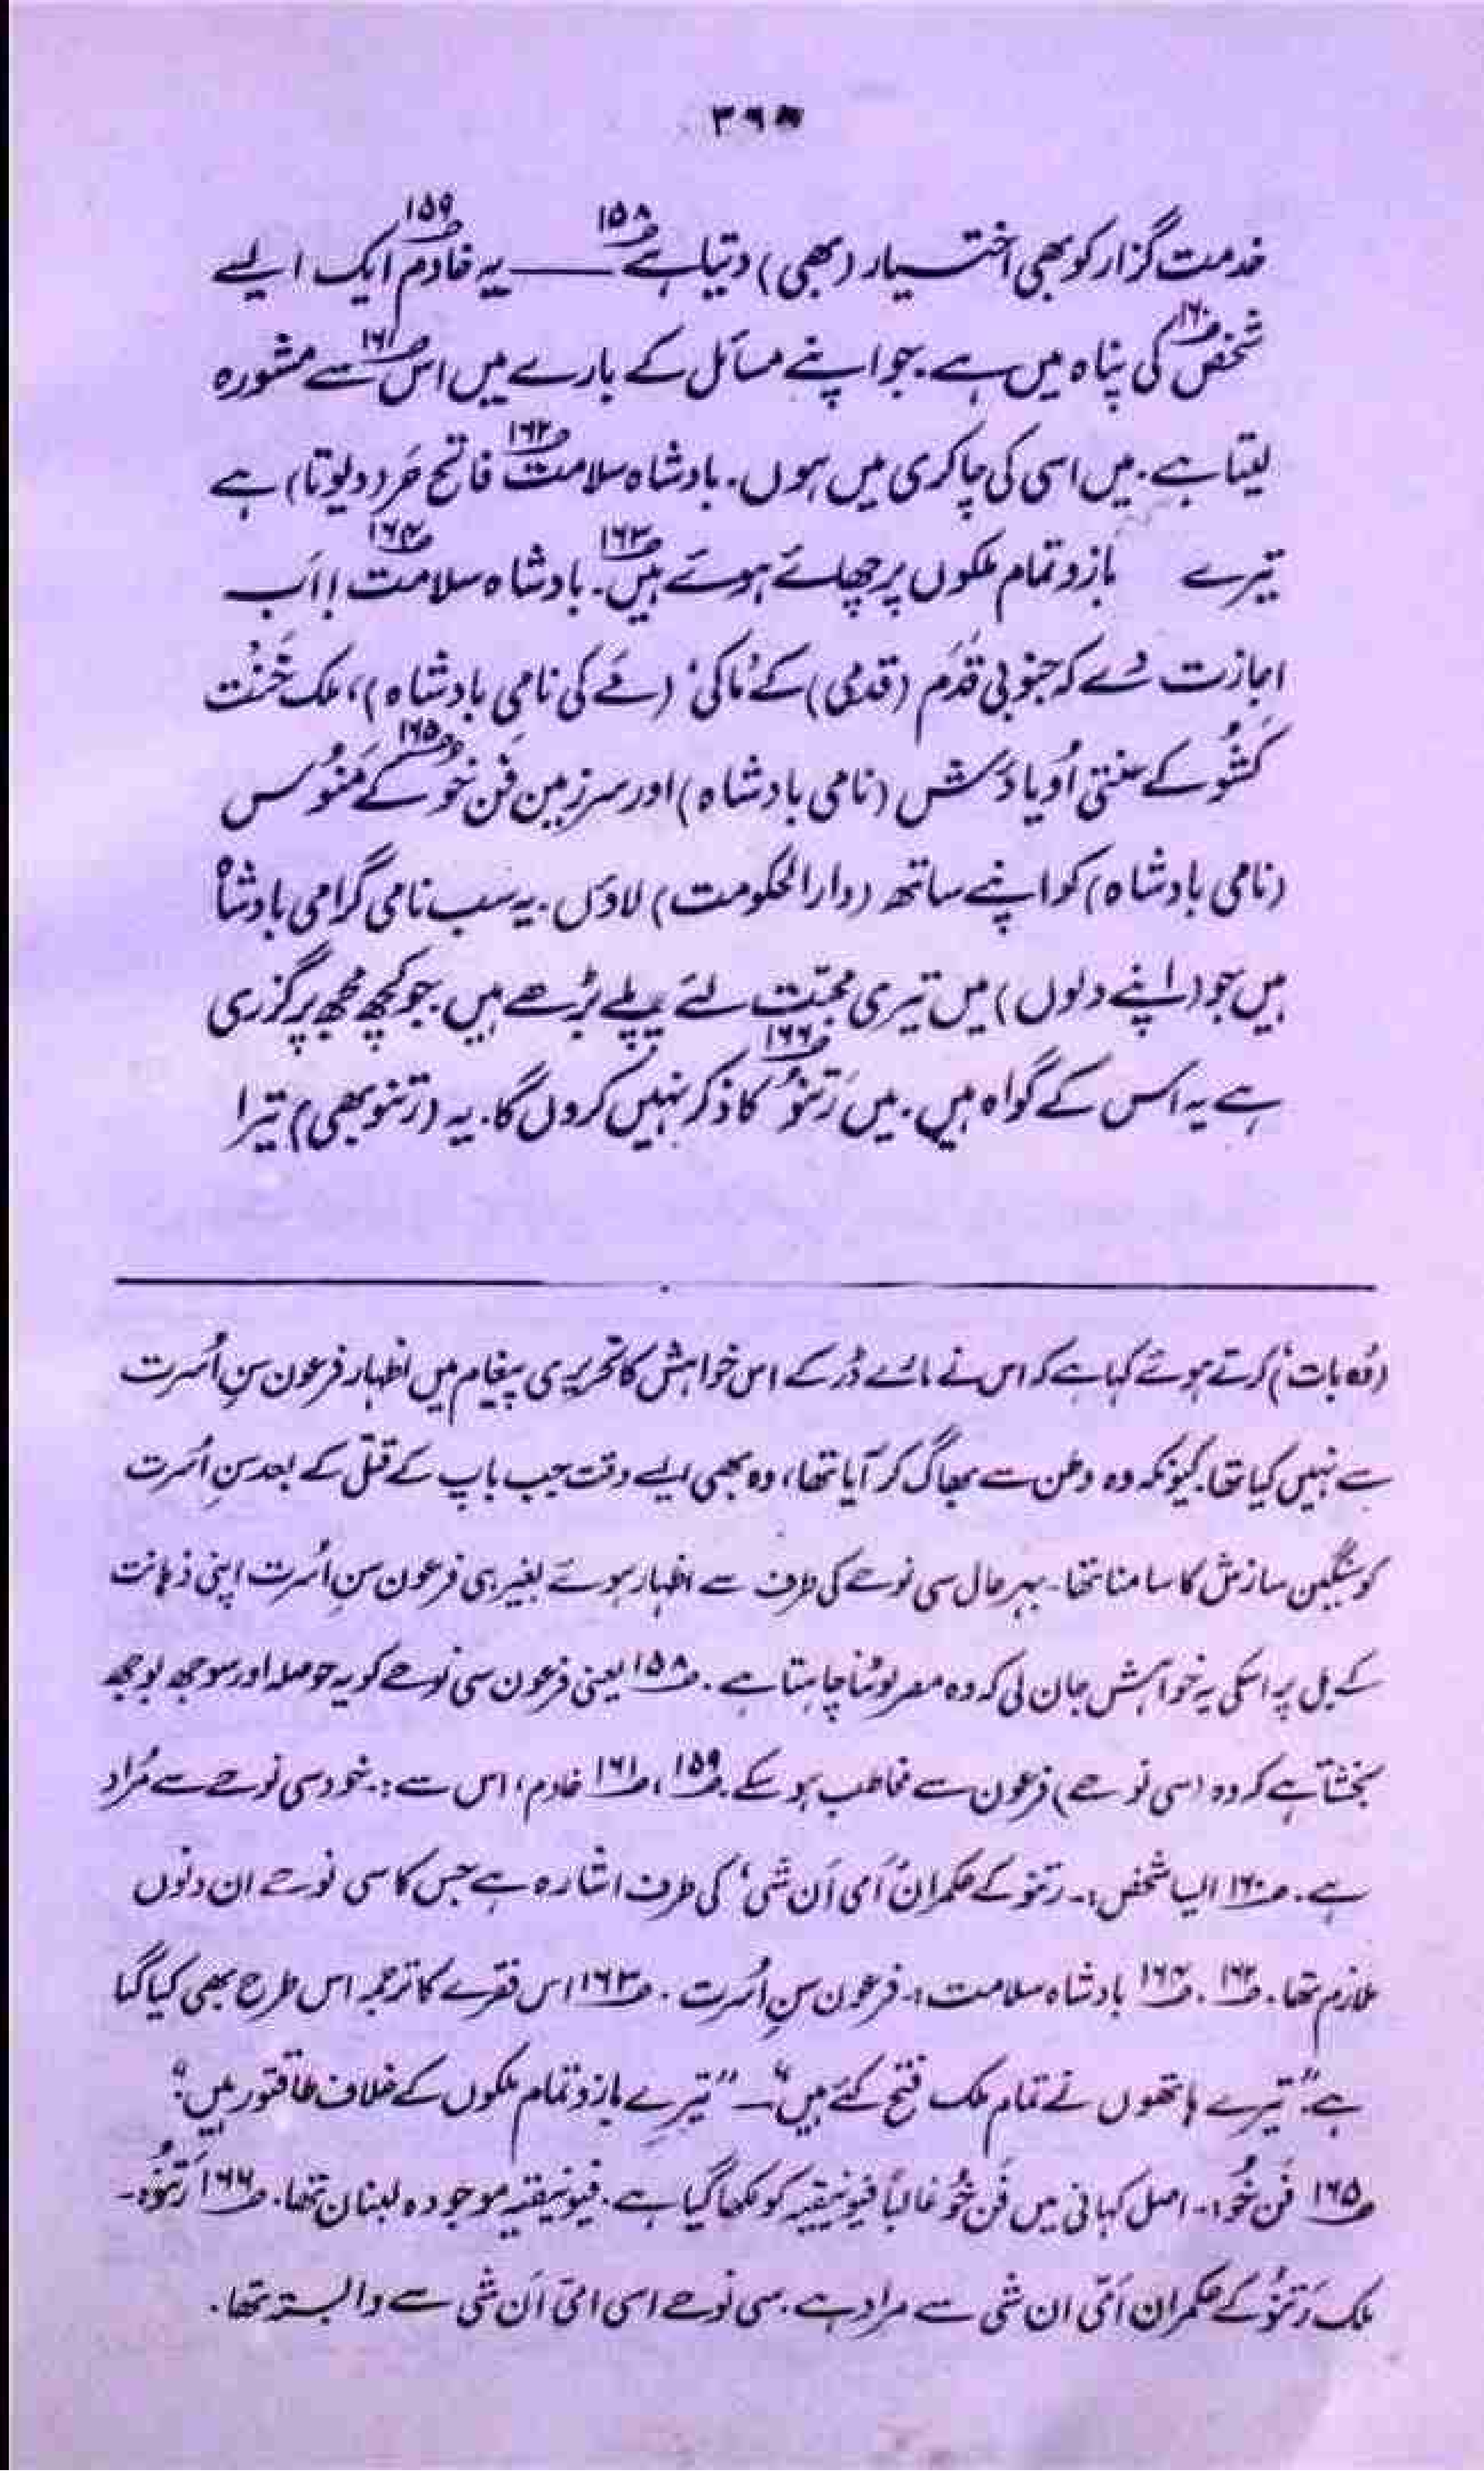 خدمت گزار کو بھی اختیار (بھی) دیتا ہے ۱۵۸؂ —— یہ خادم ۱۵۹؂ ایک ایسے
شخص ۱۶۰؂ کی پناہ میں ہے۔ جو اپنے مسائل کے بارے میں اس ۱۶۱؂ سے مشورہ
لیتا ہے۔ میں اسی کی چاکری میں ہوں۔ بادشاہ سلامت ۱۶۲؂ فاتح حَر (دیوتا) ہے
تیرے بازو تمام ملکوں پر چھائے ہوئے ہیں ۱۶۳؂۔ بادشاہ سلامت ۱۶۴؂! اَب
اجازت دے کہ جنوبی قَدَم (قدمی) کے 'ماکی' (مے کی نامی بادشاہ)، ملک خَنْت
کَشُو کے خنتی اُویا دَش (نامی بادشاہ) اور سرزمین فَن خُو ۱۶۵؂ کے مَنُوس
(نامی بادشاہ) کو اپنے ساتھ (دارالحکومت) لاؤں۔ یہ سب نامی گرامی بادشاہ
ہیں جو (اپنے دلوں) میں تیری محبّت لئے پلے بڑھے ہیں۔ جو کچھ مجھ پر گزری
ہے یہ اس کے گواہ ہیں۔ میں رَتنُو ۱۶۶؂ کا ذکر نہیں کروں گا۔ یہ (رتنو بھی) تیرا
('وہ بات') کرتے ہوئے کہا ہے کہ اس نے مارے ڈر کے اس خواہش کا تحریری پیغام میں اظہار فرعون سنِ اُسرت
سے نہیں کیا تھا۔ کیونکہ وہ وطن سے بھاگ کر آیا تھا، وہ بھی ایسے وقت جب باپ کے قتل کے بعد سنِ اُسرت
کو سنگین سازش کا سامنا تھا۔ بہرحال سی نوحے کی طرف سے اظہار ہوئے بغیر ہی فرعون سنِ اُسرت اپنی ذہانت
کے بل پر اسکی یہ خواہش جان لی کہ وہ مصر لوٹنا چاہتا ہے۔ ۱۵۸؂ یعنی فرعون سی نوحے کو یہ حوصلہ اور سوجھ بوجھ
بخشتا ہے کہ وہ (سی نوحے) فرعون سے مخاطب ہو سکے۔ ۱۵۹؂، ۱۶۱؂ خادم، اس سے:۔ خود سی نوحے سے مُراد
ہے۔ ۱۶۰؂ ایسا شخص:۔ رتنو کے حکمران 'اَمی اَن شی' کی طرف اشارہ ہے جس کا سی نوحے ان دنوں
ملازم تھا۔ ۱۶۲؂، ۱۶۴؂ بادشاہ سلامت:۔ فرعون سنِ اُسرت۔ ۱۶۳؂ اس فقرے کا ترجمہ اس طرح بھی کیا گیا
ہے "تیرے ہاتھوں نے تمام ملک فتح کئے ہیں"۔ "تیرے بازو تمام ملکوں کے خلاف طاقتور ہیں"
۱۶۵؂ فَن خُو:۔ اصل کہانی میں فَن خُو غالباً فیونیقیہ کو لکھا گیا ہے۔ فیونیقیہ موجودہ لبنان تھا۔ ۱۶۶؂ رَتنُو:۔
ملک رَتنُو کے حکمران اَمّی ان شی سے مراد ہے۔ سی نوحے اسی امّی اَن شی سے وابستہ تھا۔